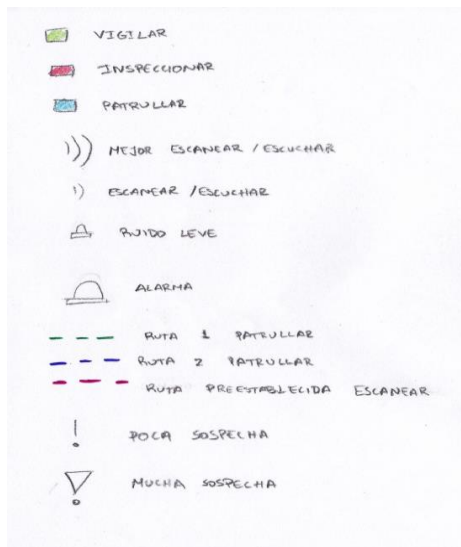 VIGILAR
INSPECCIONAR
PATRULLAR
MEJOR ESCANEAR / ESCUCHAR
ESCANEAR / ESCUCHAR
RUIDO LEVE
ALARMA
RUTA 1 PATRULLAR
RUTA 2 PATRULLAR
RUTA PREESTABLECIDA ESCANEAR
POCA SOSPECHA
MUCHA SOSPECHA